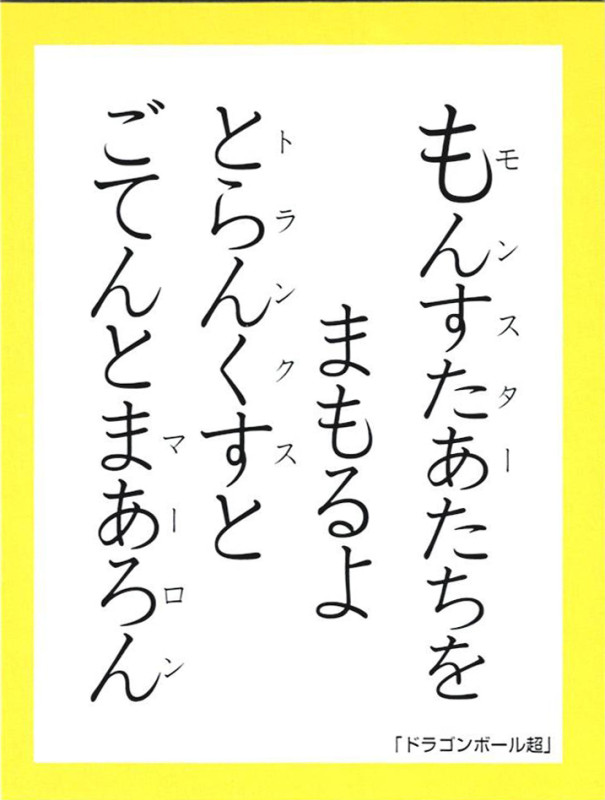 もんすたあたちを
モンスター
まもるよ
とらんくすと
トランクス
ごてんとまあろん
マーロン
「ドラゴンボール超」